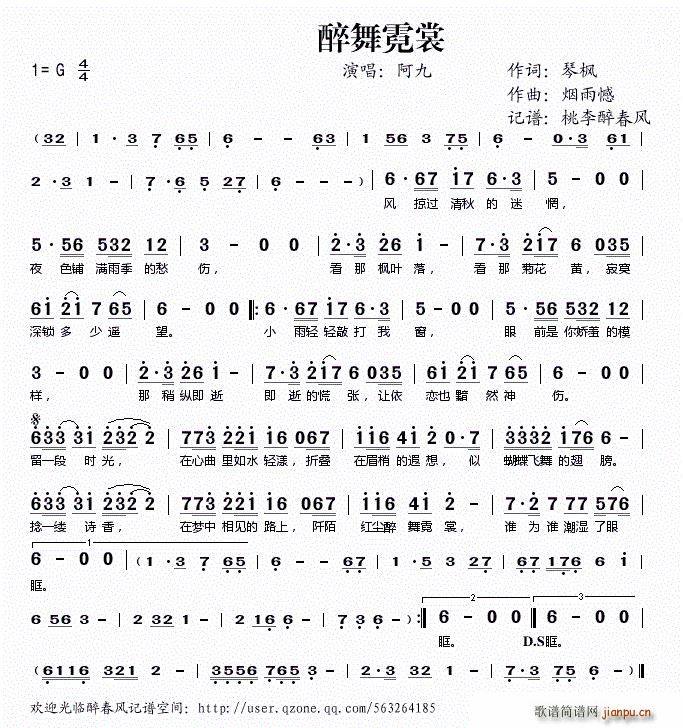 醉舞霓裳
1= G 4/4 演唱: 阿九 作词: 琴枫
作曲: 烟雨憾
记谱: 桃李醉春风
( 32 | 1 · 3 7 65 | 6 - - 63 | 1 · 3 2 3 | 56 3 75 | 6 - - 0 · 3 | 61
2 · 3 1 - | 7 · 6 5 27 | 6 - - - ) | 6 · 67 17 6 · 3 | 5 - 0 0 |
风 掠过 清秋 的 迷 惘,
5 · 56 532 12 | 3 - 0 0 | 2 · 3 26 1 - | 7 · 3 217 6 035 |
夜 色铺 满雨季 的愁 伤, 看 那 枫叶 落, 看 那 菊花 黄, 寂寞
61 21 7 65 | 6 - 0 0 |: 6 · 67 17 6 · 3 | 5 - 0 0 | 5 · 56 532 12 |
深锁 多 少 遥 望。 小 雨轻 轻敲 打 我 窗, 眼 前是 你娇羞 的模
3 - 0 0 | 2 · 3 26 1 - | 7 · 3 217 6 035 | 61 21 7 65 | 6 - 0 0 |
样, 那 稍 纵即 逝 即 逝 的慌 张, 让依 恋也 黯 然 神 伤。
633 31 232 2 | 773 221 16 067 | 116 41 2 0 · 7 | 3332 176 6 - |
留一段 时 光, 在心曲 里如水 轻漾, 折叠 在眉梢 的遐 想, 似 蝴蝶飞舞 的翅 膀。
633 31 232 2 | 773 221 16 067 | 116 41 2 - | 7 · 2 77 576 |
捻一缕 诗 香, 在梦中 相见的 路上, 阡陌 红尘醉 舞霓 裳, 谁 为 谁 潮湿 了眼
1
6 - 0 0 | ( 1 · 3 7 67 | 6 - - 3 | 1 · 3 2 · 3 | 5 3 27 | 67 176 6 i |
眶。
6 56 3 - | 2 · 3 1 - | 2 32 1 - | 2 1 6 - | 7 3 6 - ) :| 6 - 0 0 :| 6 - 0 0 |
2 3
眶。 D.S眶。
( 6116 321 2 - | 3556 765 3 - | 2 · 3 26 1 - | 7 · 3 57 6 - ) |
欢迎光临醉春风记谱空间: http://user.qzone.qq.com/563264185
歌谱简谱网
jianpu.cn